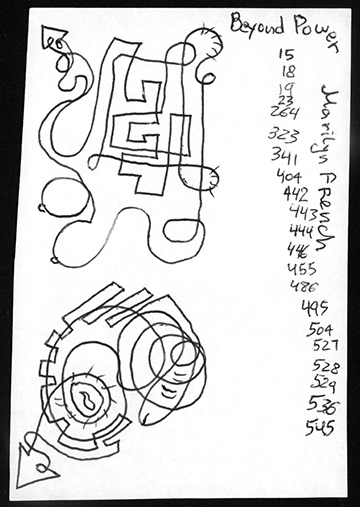 Beyond Power
Marilyn French
15
18
19
23
264
323
341
404
442
443
444
446
455
486
495
504
527
528
529
536
545